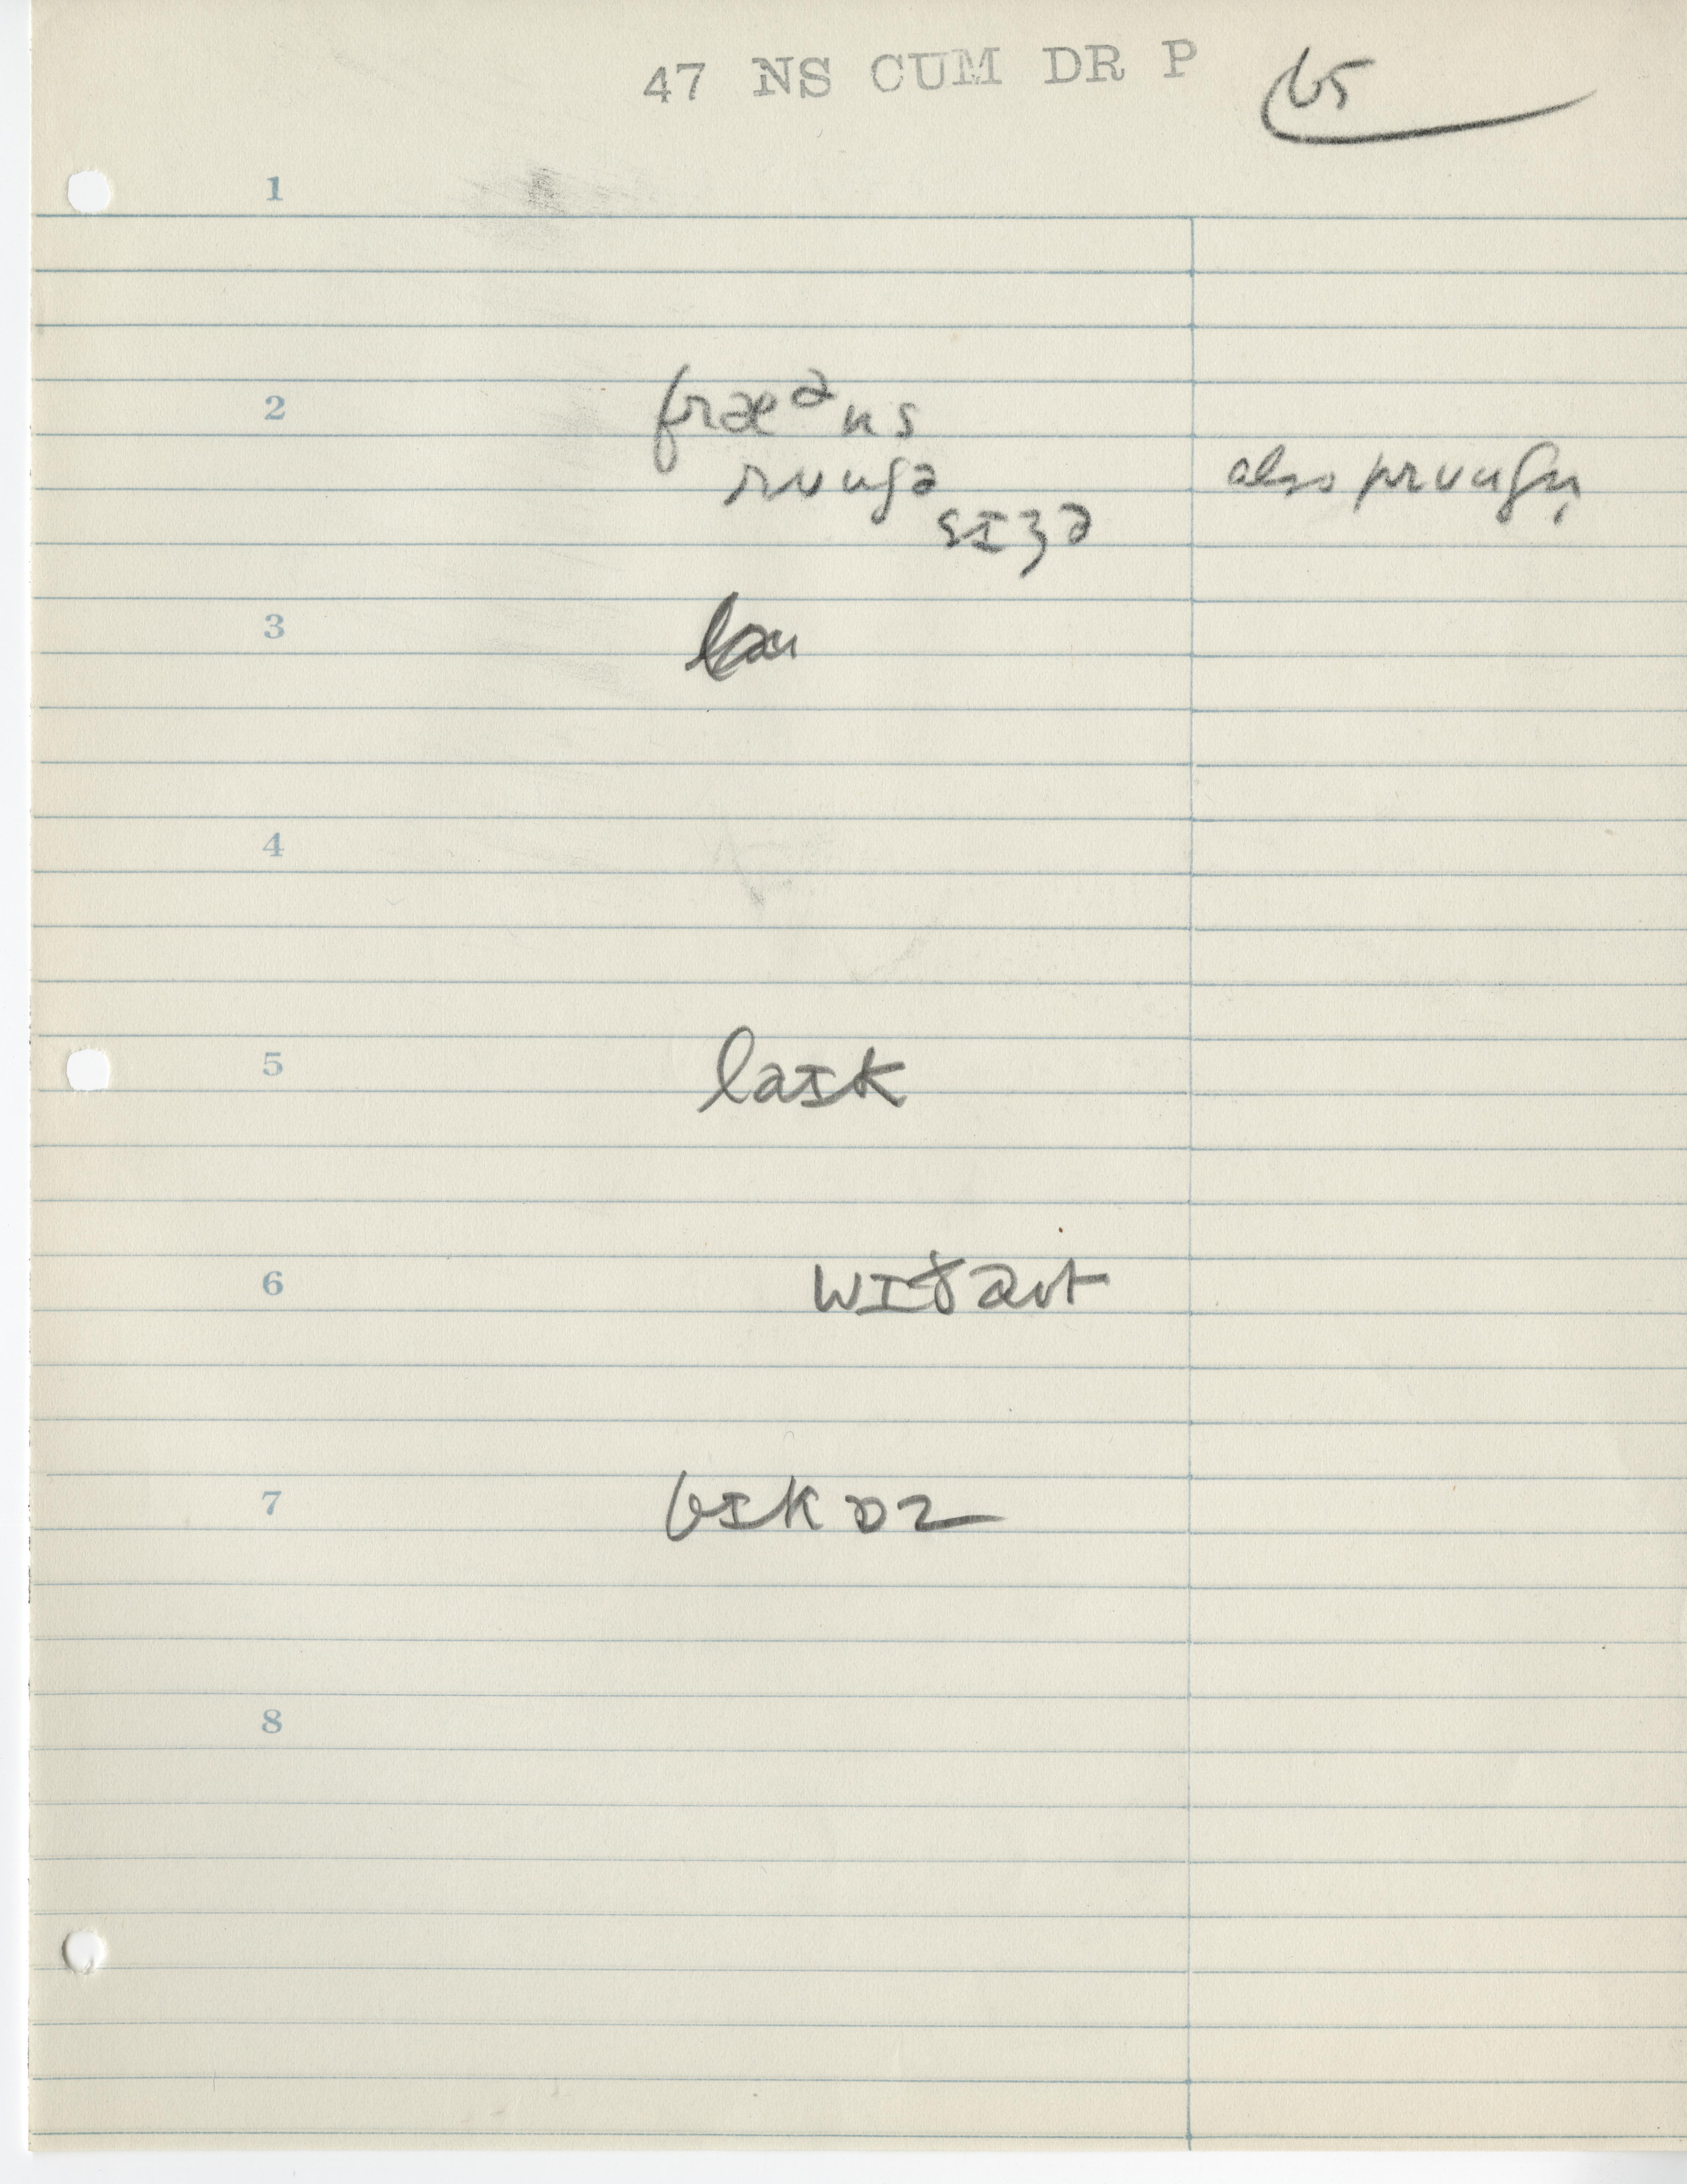 47 NS CUM DR P 65
1
2 fræᵊns
rʊuʃə also prʊuʃn̩
sɪʒə
3
4
5 laɪk
6 wɪðaʊt
7 bɪkɒz
8